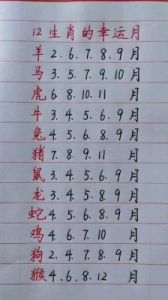 12生肖的幸运月
羊2.6.7.8.9月
马3.5.7.9.10月
虎6.8.10.11月
牛3.4.5.6.9月
兔4.5.6.8.9月
猪7.8.9.11月
鼠3.4.5.6.9月
龙3.4.5.8.9月
蛇4.5.6.8.9月
鸡4.6.7.10月
狗2.4.7.8.9月
猴4.6.8.12月